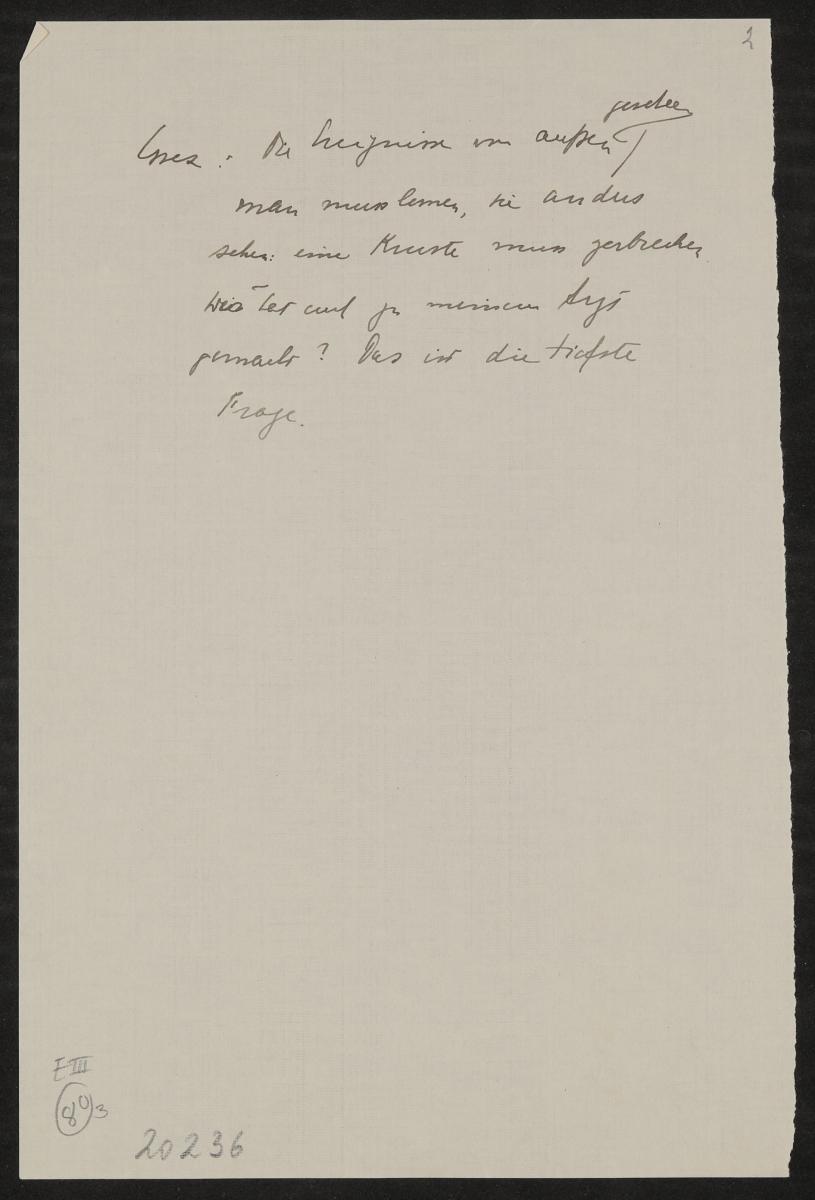 2
gesehen
Essex : Die Ereignisse von außen
man muss lernen, sie anders
sehen: eine Kruste muss zerbrechen
Wer hat euch zu meinem Arzt
gemacht? Das ist die tiefste
Frage.
E III
80 3
20236